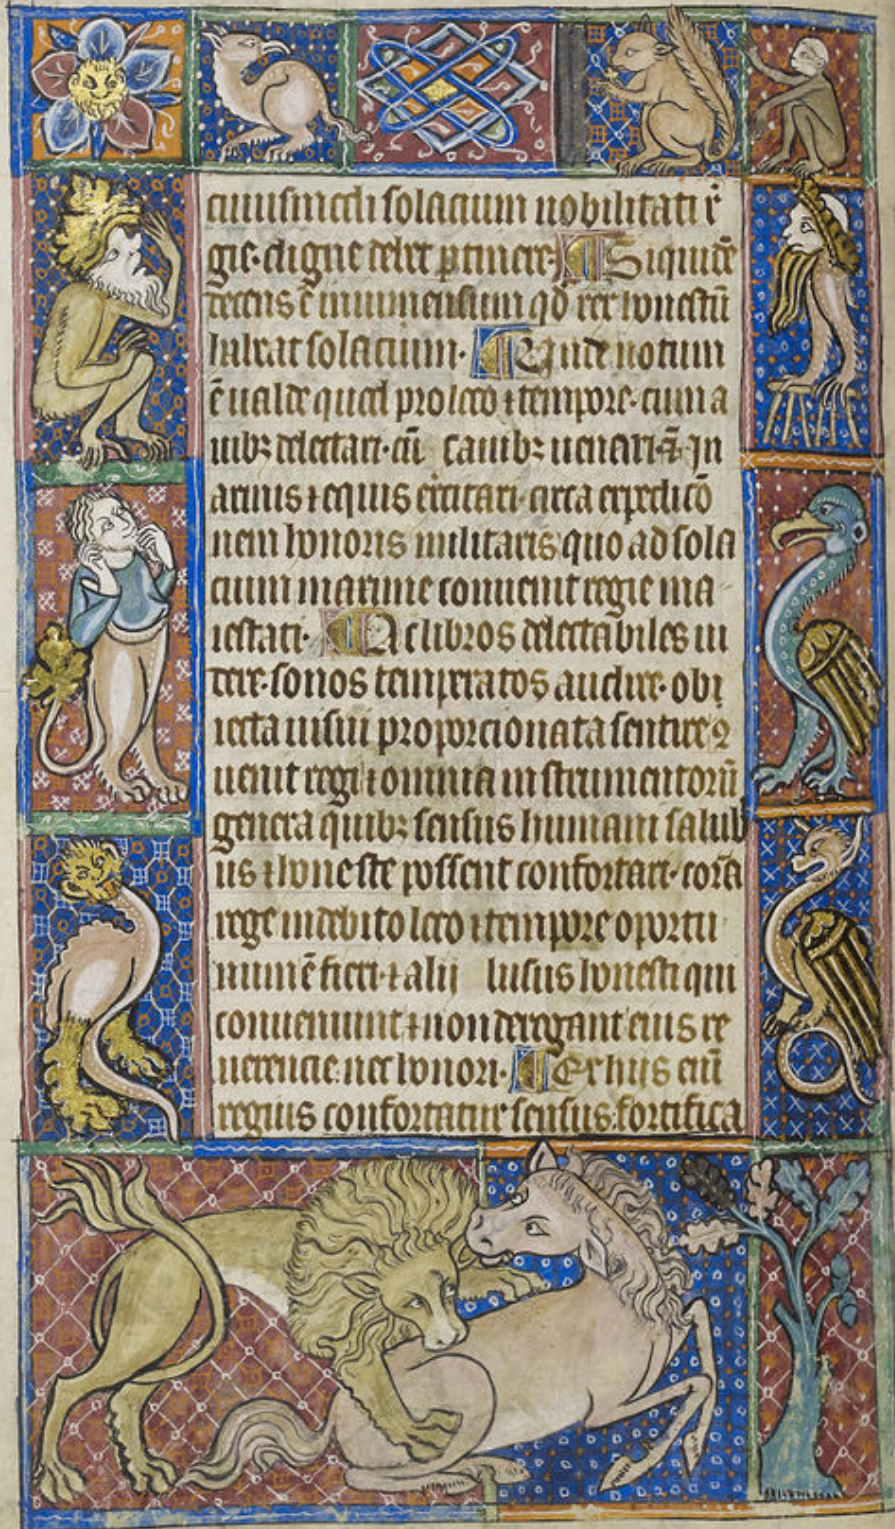 cuiusmodi solacium nobilitati rē
gie· digne debet ꝑtinere· Siquidē
decens ē inmensum qd rex honestū
habeat solacium· Unde notum
ē ualde quod pro loco ⁊ tempore· cum a
uibꝫ delectari· cū canibꝫ uenari· ⁊ In
armis ⁊ equis exc̄itari· circa expedicō
nem honoris militaris· quo ad sola
cium maxime conuenit regie ma
iestati· Ac libros delectabiles ui
dere· sonos temperatos audire· obi
iecta uisui proporcionata sentire ꝯ
uenit regi ⁊ omnia instrumentorū
genera quibꝫ sensus humani salub
us ⁊ honeste possent confortari· corā
rege in debito loco ⁊ tempore oportu
num ē fieri· ⁊ alij lusus honesti qui
conueniunt ⁊ non derogant eius re
uerencie· nec honori· Ex hijs eni̅
regius confortatur sensus· fortifica